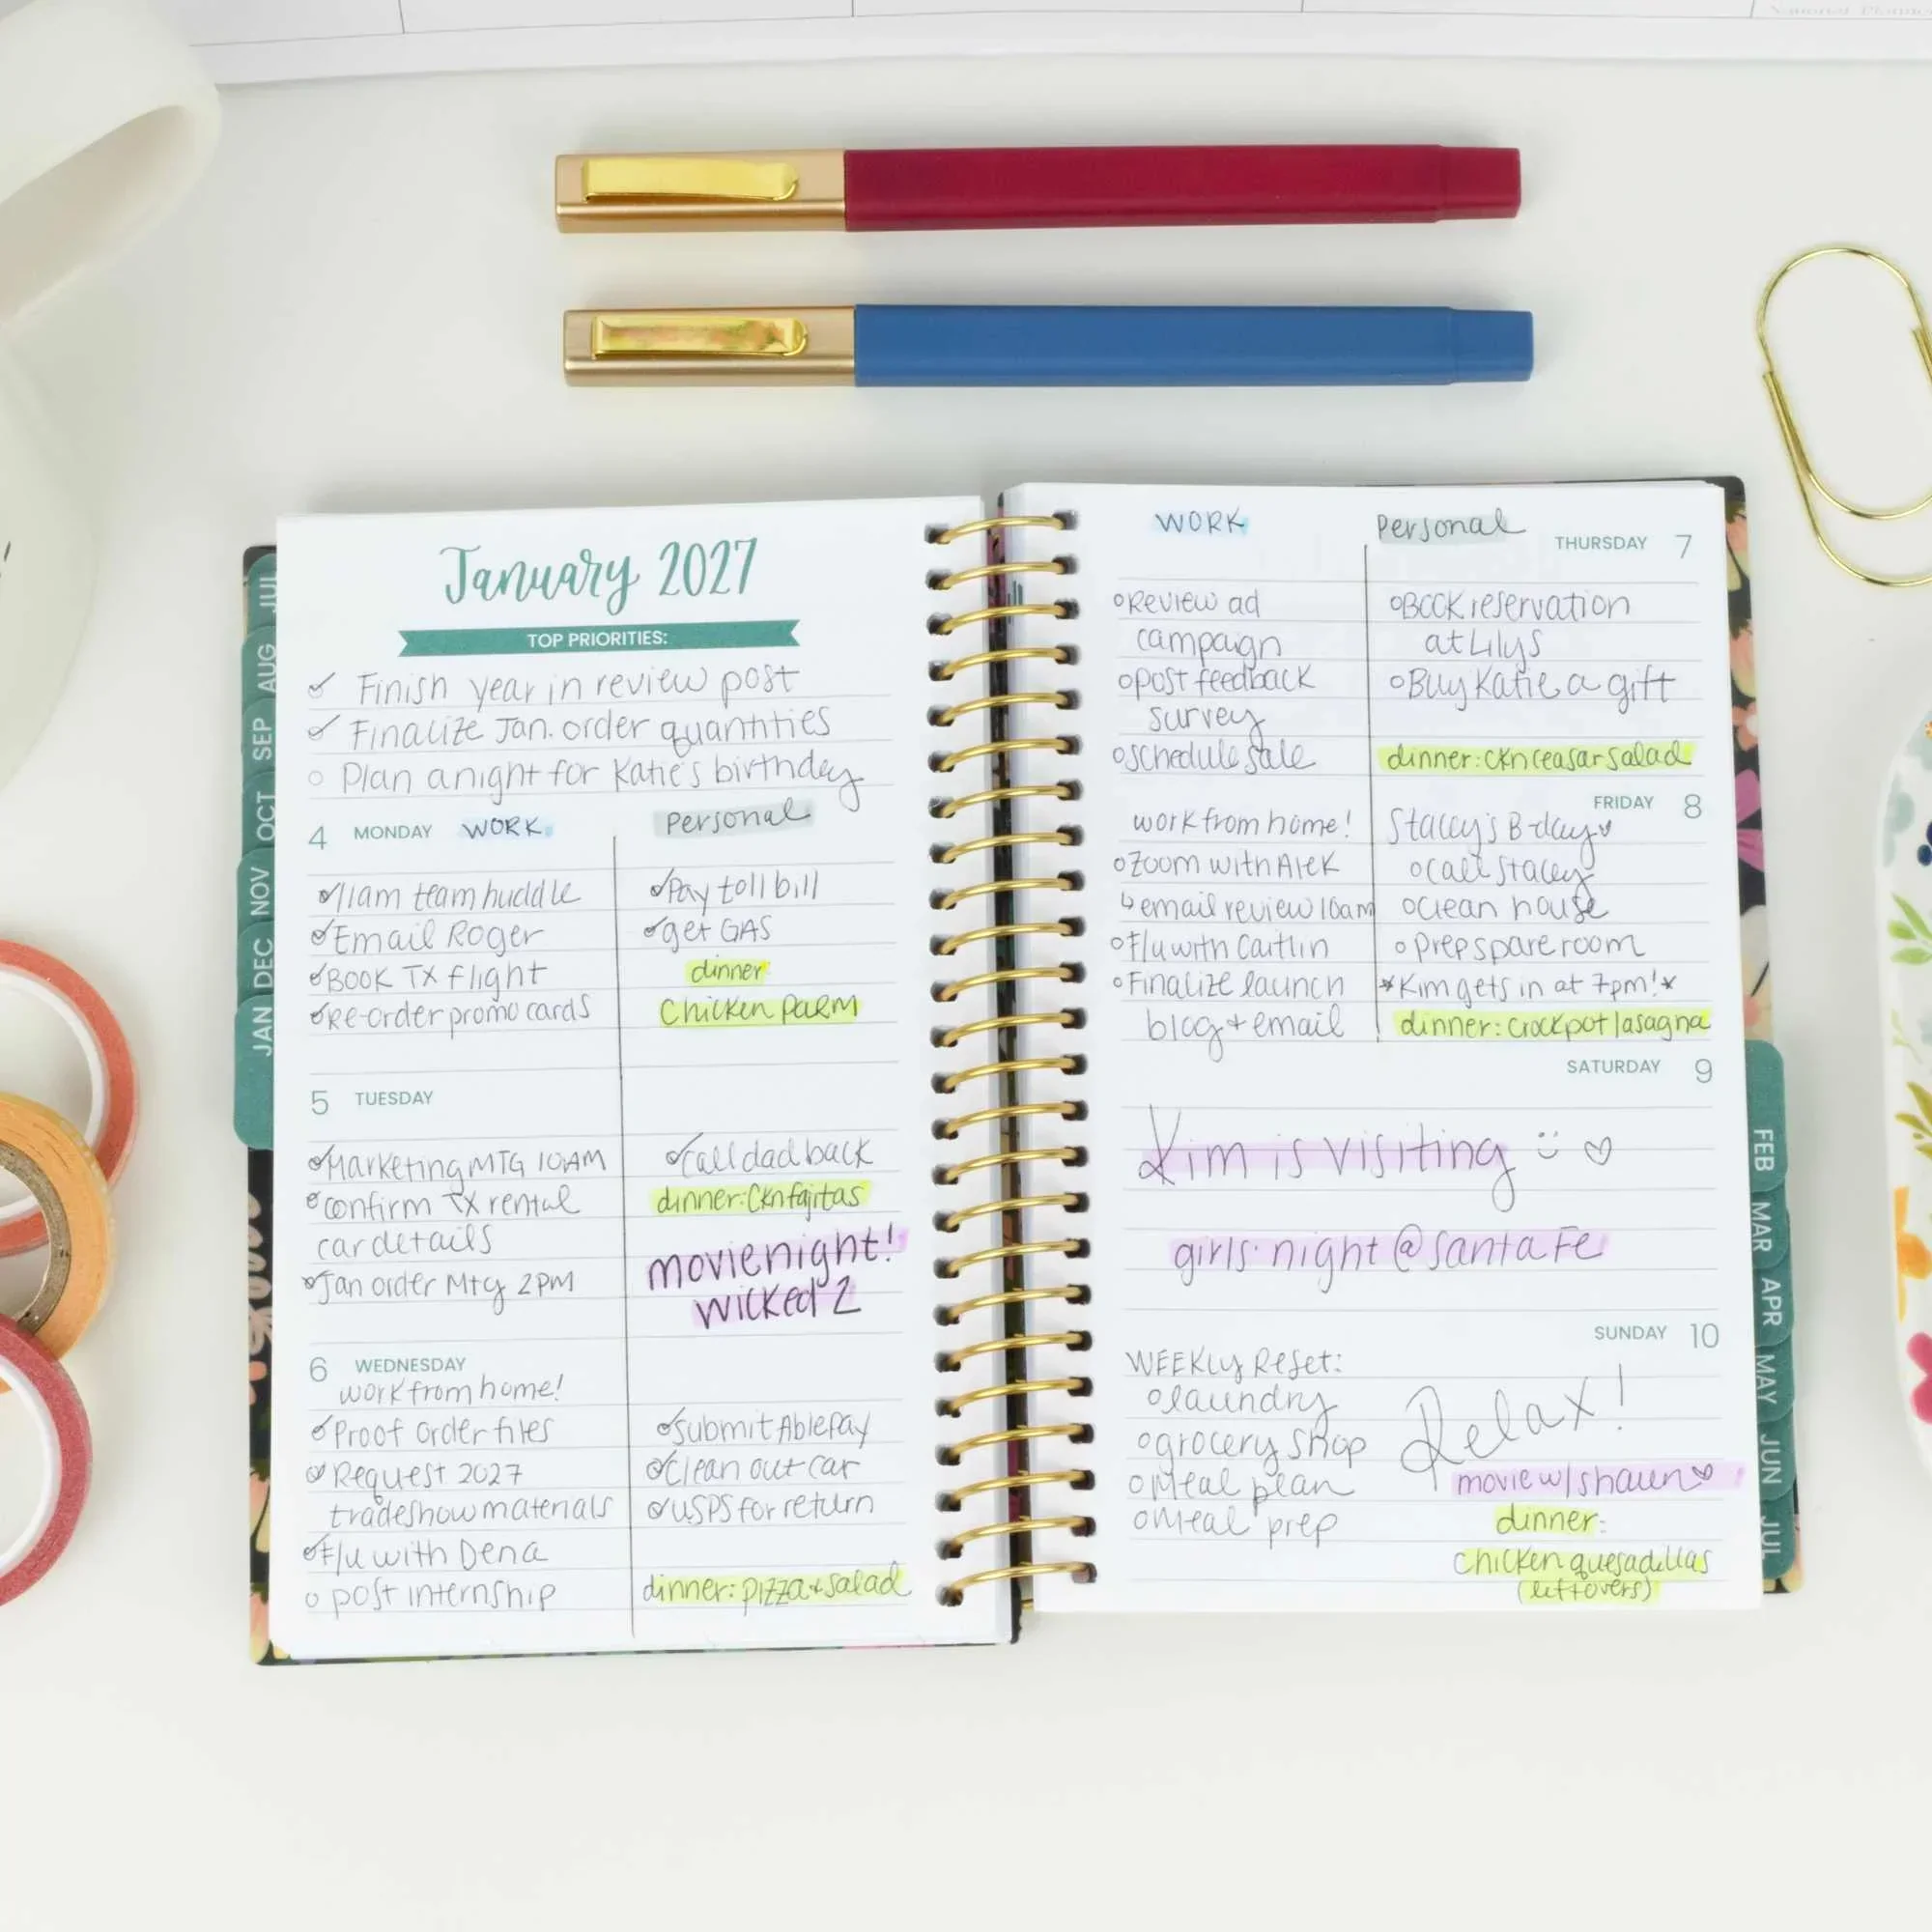 National Planner
JUL
AUG
SEP
OCT
NOV
DEC
JAN
January 2027
TOP PRIORITIES:
Finish year in review post
Finalize Jan. order quantities
Plan a night for Katie's birthday
4 MONDAY WORK Personal
11am team huddle
Email Roger
BOOK TX flight
Re-order promo cards
Pay toll bill
get GAS
dinner
Chicken PARM
5 TUESDAY
Marketing MTG 10AM
Confirm TX rental
car details
Jan order Mtg 2PM
Call dad back
dinner: Ckn fajitas
movie night!
wicked 2
6 WEDNESDAY
work from home!
Proof order files
Request 2027
tradeshow materials
F/u with Dena
post internship
Submit AblePay
Clean out car
USPS for return
dinner: pizza + salad
WORK Personal THURSDAY 7
Review ad
campaign
post feedback
survey
schedule sale
BOOK reservation
at Lilys
Buy Katie a gift
dinner: ckn ceasar salad
FRIDAY 8
work from home!
Zoom with Alek
↳ email review 10am
F/u with Caitlin
Finalize launch
blog + email
Stacey's B-day ♥
call Stacey
clean house
Prep spare room
*Kim gets in at 7pm!*
dinner: crockpot lasagna
SATURDAY 9
Kim is visiting
girls' night @ Santa Fe
SUNDAY 10
WEEKLY Reset:
laundry
grocery shop
Meal plan
Meal prep
Relax!
movie w/ shaun ♡
dinner:
Chicken quesadillas
(leftovers)
FEB
MAR
APR
MAY
JUN
JUL